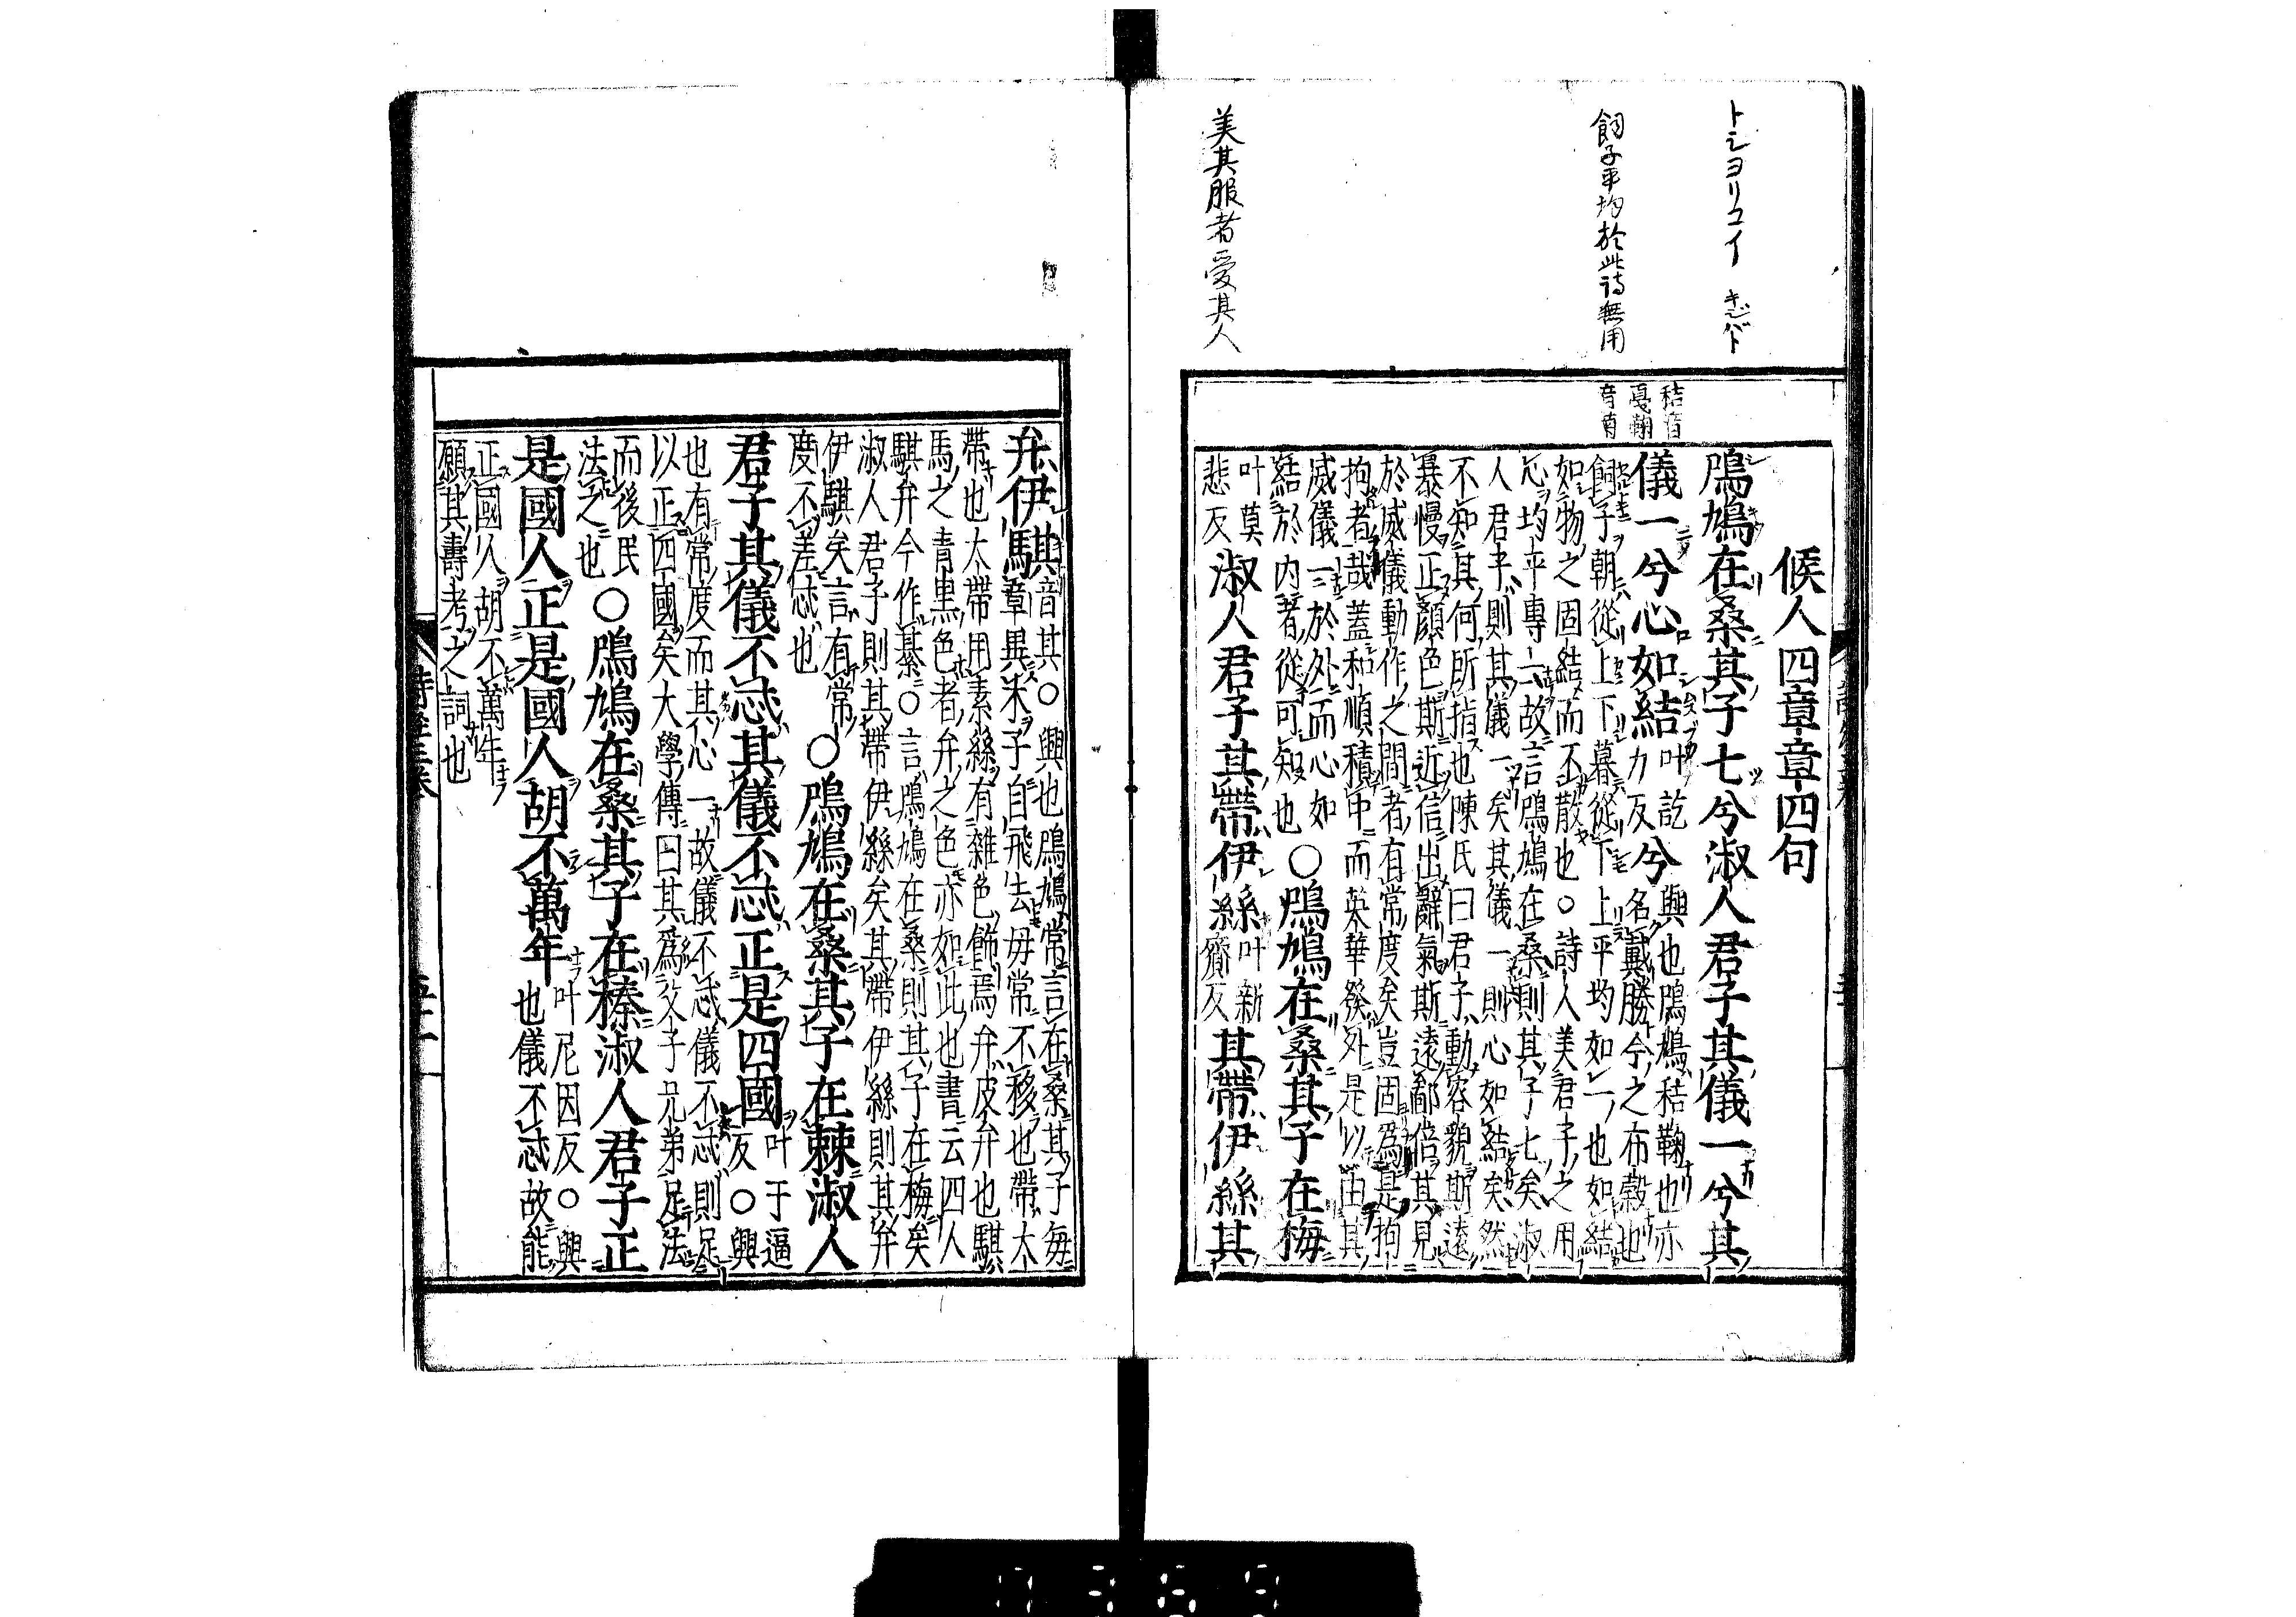 トシヨリコイ
飼子平均於此詩無用
美其服者愛其人
秸音
戛鞠
音菊
候人四章章四句
鳲鳩在桑其子七兮淑人君子其儀一兮其
儀一兮心如結叶訖力反兮興也鳲鳩秸鞠也亦名戴勝今之布穀也
飼子朝從上下暮從下上平均如一也如結
如物之固結而不散也○詩人美君子之用
心均平專一故言鳲鳩在桑則其子七矣淑
人君子則其儀一矣其儀一則心如結矣然
不知其何所指也陳氏曰君子動容貌斯遠
暴慢正顔色斯近信出辭氣斯遠鄙倍其見
於威儀動作之間者有常度矣豈固爲是拘
拘者哉蓋和順積中而英華發外是以由其
威儀一於外而心如
結於内者從可知也○鳲鳩在桑其子在梅
叶莫
悲反淑人君子其帶伊絲叶新齎反其帶伊絲其
弁伊騏音其○興也鳲鳩常言在桑其子每
章異木子自飛去母常不移也帶大
帶也大帶用素絲有雜色飾焉弁皮弁也騏
馬之青黒色者弁之色亦如此也書云四人
騏弁今作綦○言鳲鳩在桑則其子在梅矣
淑人君子則其帶伊絲矣其帶伊絲則其弁
伊騏矣言有常
度不差忒也○鳲鳩在桑其子在棘淑人
君子其儀不忒其儀不忒正是四國叶于逼反○興
也有常度而其心一故儀不忒儀不忒則足
以正四國矣大學傳曰其爲父子兄弟足法
而後民
法之也○鳲鳩在桑其子在榛淑人君子正
是國人正是國人胡不萬年叶尼因反○興也儀不忒故能
正國人胡不萬年
願其壽考之詞也